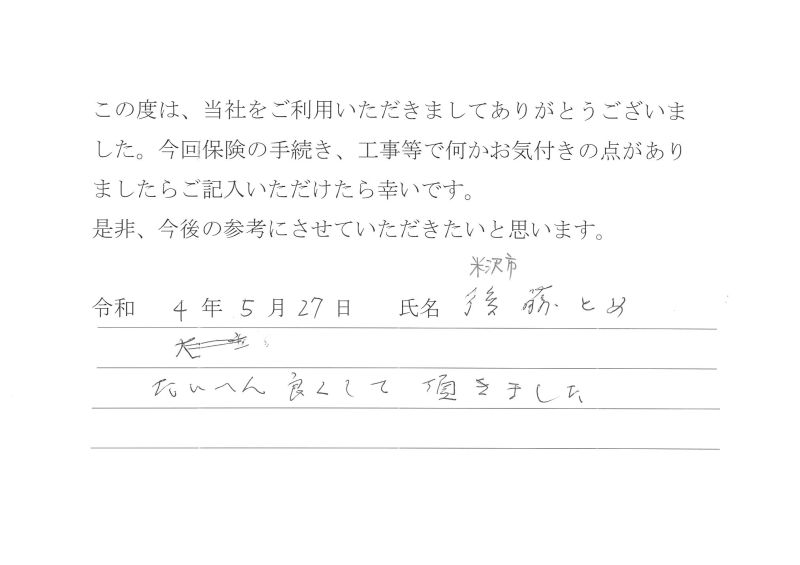 この度は、当社をご利用いただきましてありがとうございま
した。今回保険の手続き、工事等で何かお気付きの点があり
ましたらご記入いただけたら幸いです。
是非、今後の参考にさせていただきたいと思います。
米沢市
令和 4 年 5 月 27 日 氏名 後藤とめ
たいへん良くして頂きました